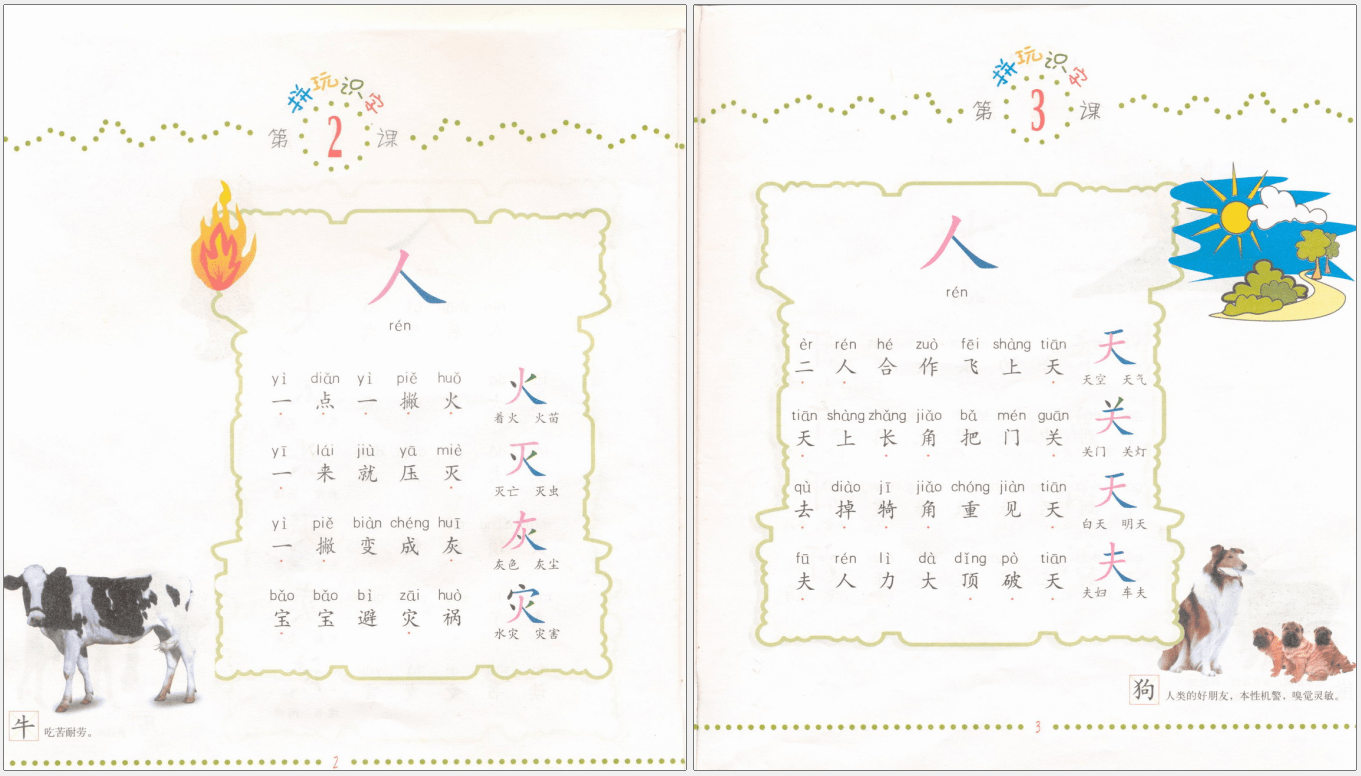 拼玩识字
第2课
人
rén
yì diǎn yì piě huǒ
一点一撇火
火
着火 火苗
yī lái jiù yā miè
一来就压灭
灭
灭亡 灭虫
yì piě biàn chéng huī
一撇变成灰
灰
灰色 灰尘
bǎo bǎo bì zāi huò
宝宝避灾祸
灾
水灾 灾害
牛 吃苦耐劳。
2
拼玩识字
第3课
人
rén
èr rén hé zuò fēi shàng tiān
二人合作飞上天
天
天空 天气
tiān shàng zhǎng jiǎo bǎ mén guān
天上长角把门关
关
关门 关灯
qù diào jī jiǎo chóng jiàn tiān
去掉犄角重见天
天
白天 明天
fū rén lì dà dǐng pò tiān
夫人力大顶破天
夫
夫妇 车夫
狗 人类的好朋友，本性机警，嗅觉灵敏。
3